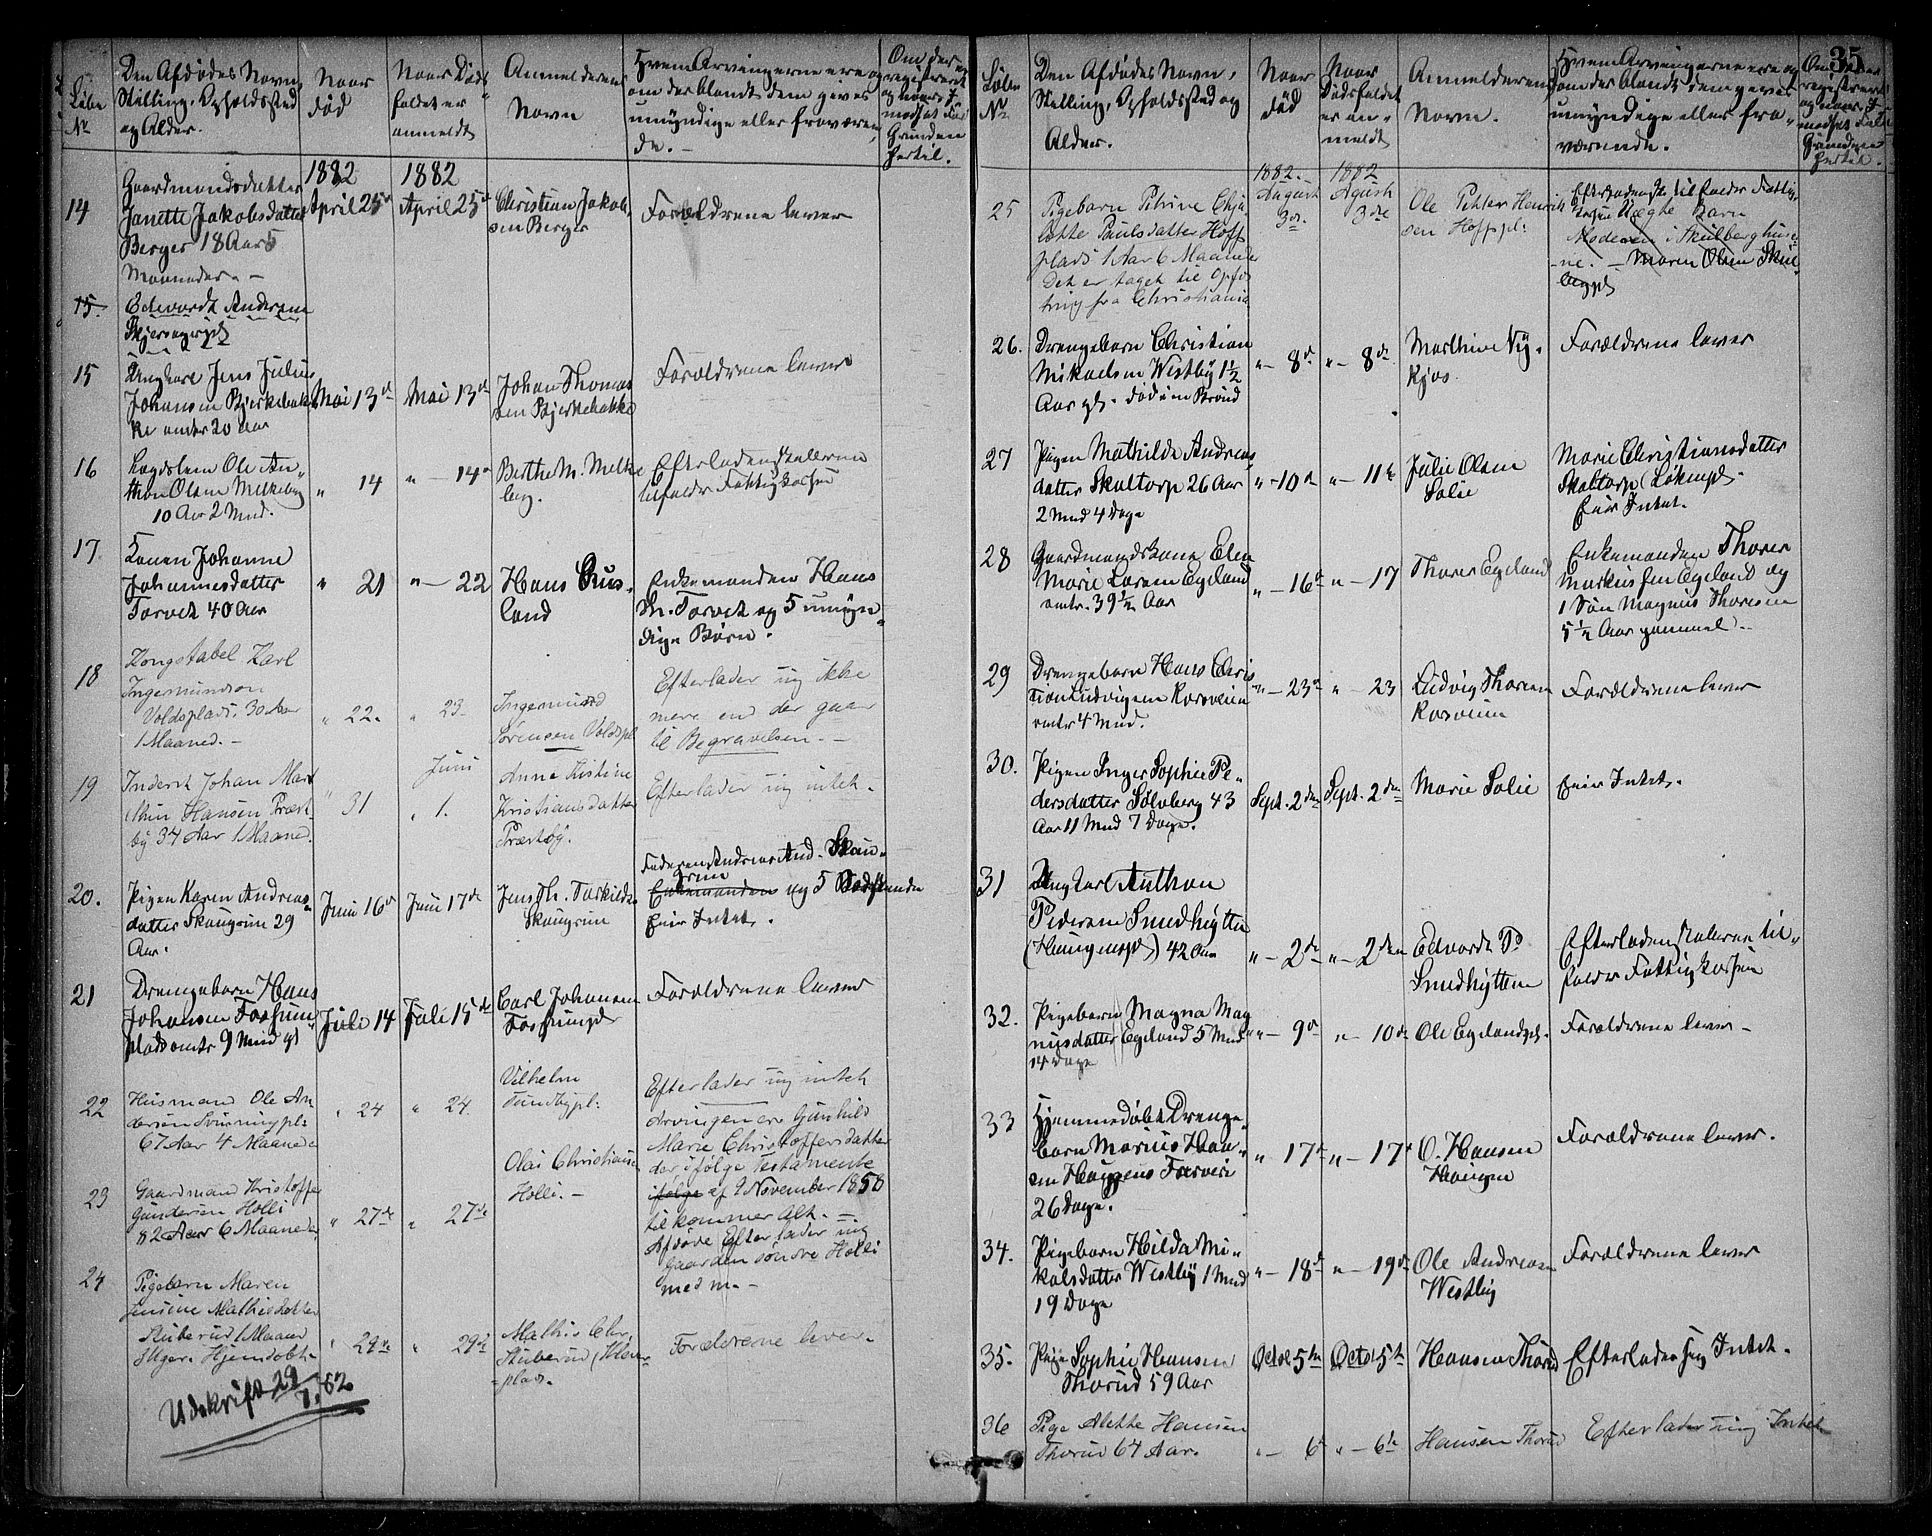 35
Løbe No
Den Afdødes Navn,
Stilling, Opholdssted
og Alder.
Naar
død
Naar Døds
faldet er
anmeldt
Anmelderens
Navn
Hvem Arvingerne ere og
om der blandt dem gives
umyndige eller fraværen
de.
Om der er
registreret
og naar, I
modsat Fald
Grunden
hertil.
14
Gaardmandsdatter
Janette Jakobsdatter
Berger 18 Aar 5
Maaneder.
1882
April 25de
1882
April 25de
Christian Jakob
sen Berger
Forældrene lever
15
Edevardt Andersen
15
Ungkarl Jens Julius
Johansen Bjerkebak
ke omtr 20 Aar
Mai 13de
Mai 13de
Johan Thomas
sen Bjerkebakke
Forældrene lever
16
Lægdslem Ole An
thon Olsen Melkeberg
10 Aar 2 Mnd.
" 14
" 14de
Berthe M. Melke
berg.
Efterladenskaberne
tilfalder Fattigkassen
17
Konen Johanne
Johannesdatter
Torvet 40 Aar
" 21
" 22
Hans Grus
land
Enkemanden Hans
M. Torvet og 5 umyn
dige Børn.
18
Kongstabel Karl
Ingemundson
Voldsplads. 30 Aar
1 Maaned.
" 22.
" 23.
Ingemund
Sørensen Voldspl
Efterlader sig ikke
mere end der gaar
til Begravelsen.
19
Inderst Johan Mar
thin Hansen Præst
by 34 Aar 1 Maaned.
" 31
Juni
" 1.
Anne Kistine
Kristiansdatter
Præstby.
Efterlader sig intet.
20.
Pigen Karen Andreas
datter Skaugrim 29
Aar.
Juni 16de
Juni 17de
Jens Th. Tarkilds
Skaugrim
Faderen Andreas And. Skau
grim
Enkemanden og 5 Sødskende
Eier Intet.
21
Drengebarn Hans
Johansen Fossum
plads omtr 9 Mnd gl
Juli 14
Juli 15de
Carl Johansen
Fossumpl
Forældrene lever
22
Husmand Ole An
dersen
67 Aar 4 Maaneder
" 24
" 24.
Vilhelm
Tundbypl.
Efterlader sig intet
23
Gaardmand Kristoffer
Gundersen Holli
82 Aar 6 Maaneder
" 27de
" 27de
Olai Christiansen
Holli.
Arvingen er Gunhild
Marie Christoffersdatter
der ifølge Testamente
ifølge af 9 November 1858
tilkommer Alt.
Afdøde Efterlader sig
Gaarden søndre Holli
med m.
24
Pigebarn Maren
Jensine Mathisdatter
Stuberud 1 Maaned
Uger. Hjemdøbt
" 29de
" 29de
Mathis Chr.
Stuberud
plads.
Forældrene lever.
Udskrift 29/7.82
Løbe No
Den Afdødes Navn,
Stilling, Opholdssted og
Alder.
Naar
død
Naar
Dødsfaldet
er an
meldt
Anmelderens
Navn.
Hvem Arvingerne ere og
om der blandt dem gives
umyndige eller fra
værende.
Om der er
registreret
og naar, I
modsat Fald
Grunden
hertil.
25
Pigebarn Petrine Char
lotte Paulsdatter Hoff
plads 1 Aar 6 Maaneder
Det er taget til Opfo
string fra Christiania
1882.
August
3de
1882
Agust
3de
Ole Petter Henrik
sen Hoffspl:
Efterladenskab tilfalder Fattig
kassen Uægte Barn
Moderen i Skulberghuse
ne. Maren Olsen Skul
bergpl
26.
Drengebarn Christian
Mikaelsen Westby 1½
Aar gl. død i en Brønd
" 8de
" 8de
Marthine Ny
kjøs.
Forældrene lever
27
Pigen Mathilde Andreas
datter Skaltorp 26 Aar
2 Mnd 4 Dage
" 10de
" 11te
Julie Olsen
Solie
Marie Christiansdatter
Skaltorp (Løkenpl.
Eier Intet.
28
Gaardmandskone Elen
Marie Larsen Egeland
omtr. 39½ Aar
" 16de
" 17
Thorer Egeland
Enkemanden Thorer
Markussen Egeland og
1 Søn Magnus Thoresen
5½ Aar gammel.
29
Drengebarn Hans Chris
tian Ludvigsen Korsveien
omtr 4 Mnd.
" 23de
" 23
Ludvig Thoresen
Korsveien
Forældrene lever
30.
Pigen Inger Sophie Pe
dersdatter Sølvberg 43
Aar 11 Mnd 7 Dage.
Sept. 2den
Sept. 2den
Marie Solie
Eier Intet.
31
Ungkarl Anthon
Pedersen Smedhytten
(Haugenspl) 42 Aar
" 2de
" 2den
Edvardt P.
Smedhytten
Efterladenskaberne til
falder Fattigkassen
32.
Pigebarn Magna Mag
nusdatter Egeland 5 Mnd
14 Dage
" 9de
" 10de
Ole Egelandspl.
Forældrene lever
33
Hjemmedøbt Drenge
barn Marius Han
sen Haugens
26 Dage.
" 17de
" 17de
O. Hansen
Haugen
Forældrene lever.
34.
Pigebarn Hilda Mi
kalsdatter Westby 1 Mnd
19 Dage
" 18de
" 19de
Ole Andreasen
Westby
Forældrene lever
35.
Pige Sophie Hansen
Thorud 59 Aar
Octob 5te
Octob 5te
Hansen Thorud
Efterlader sig Intet.
36
Pige Alette Hansen
Thorud 67 Aar.
" 6te
" 6te
Hansen Thorud
Efterlader sig Intet